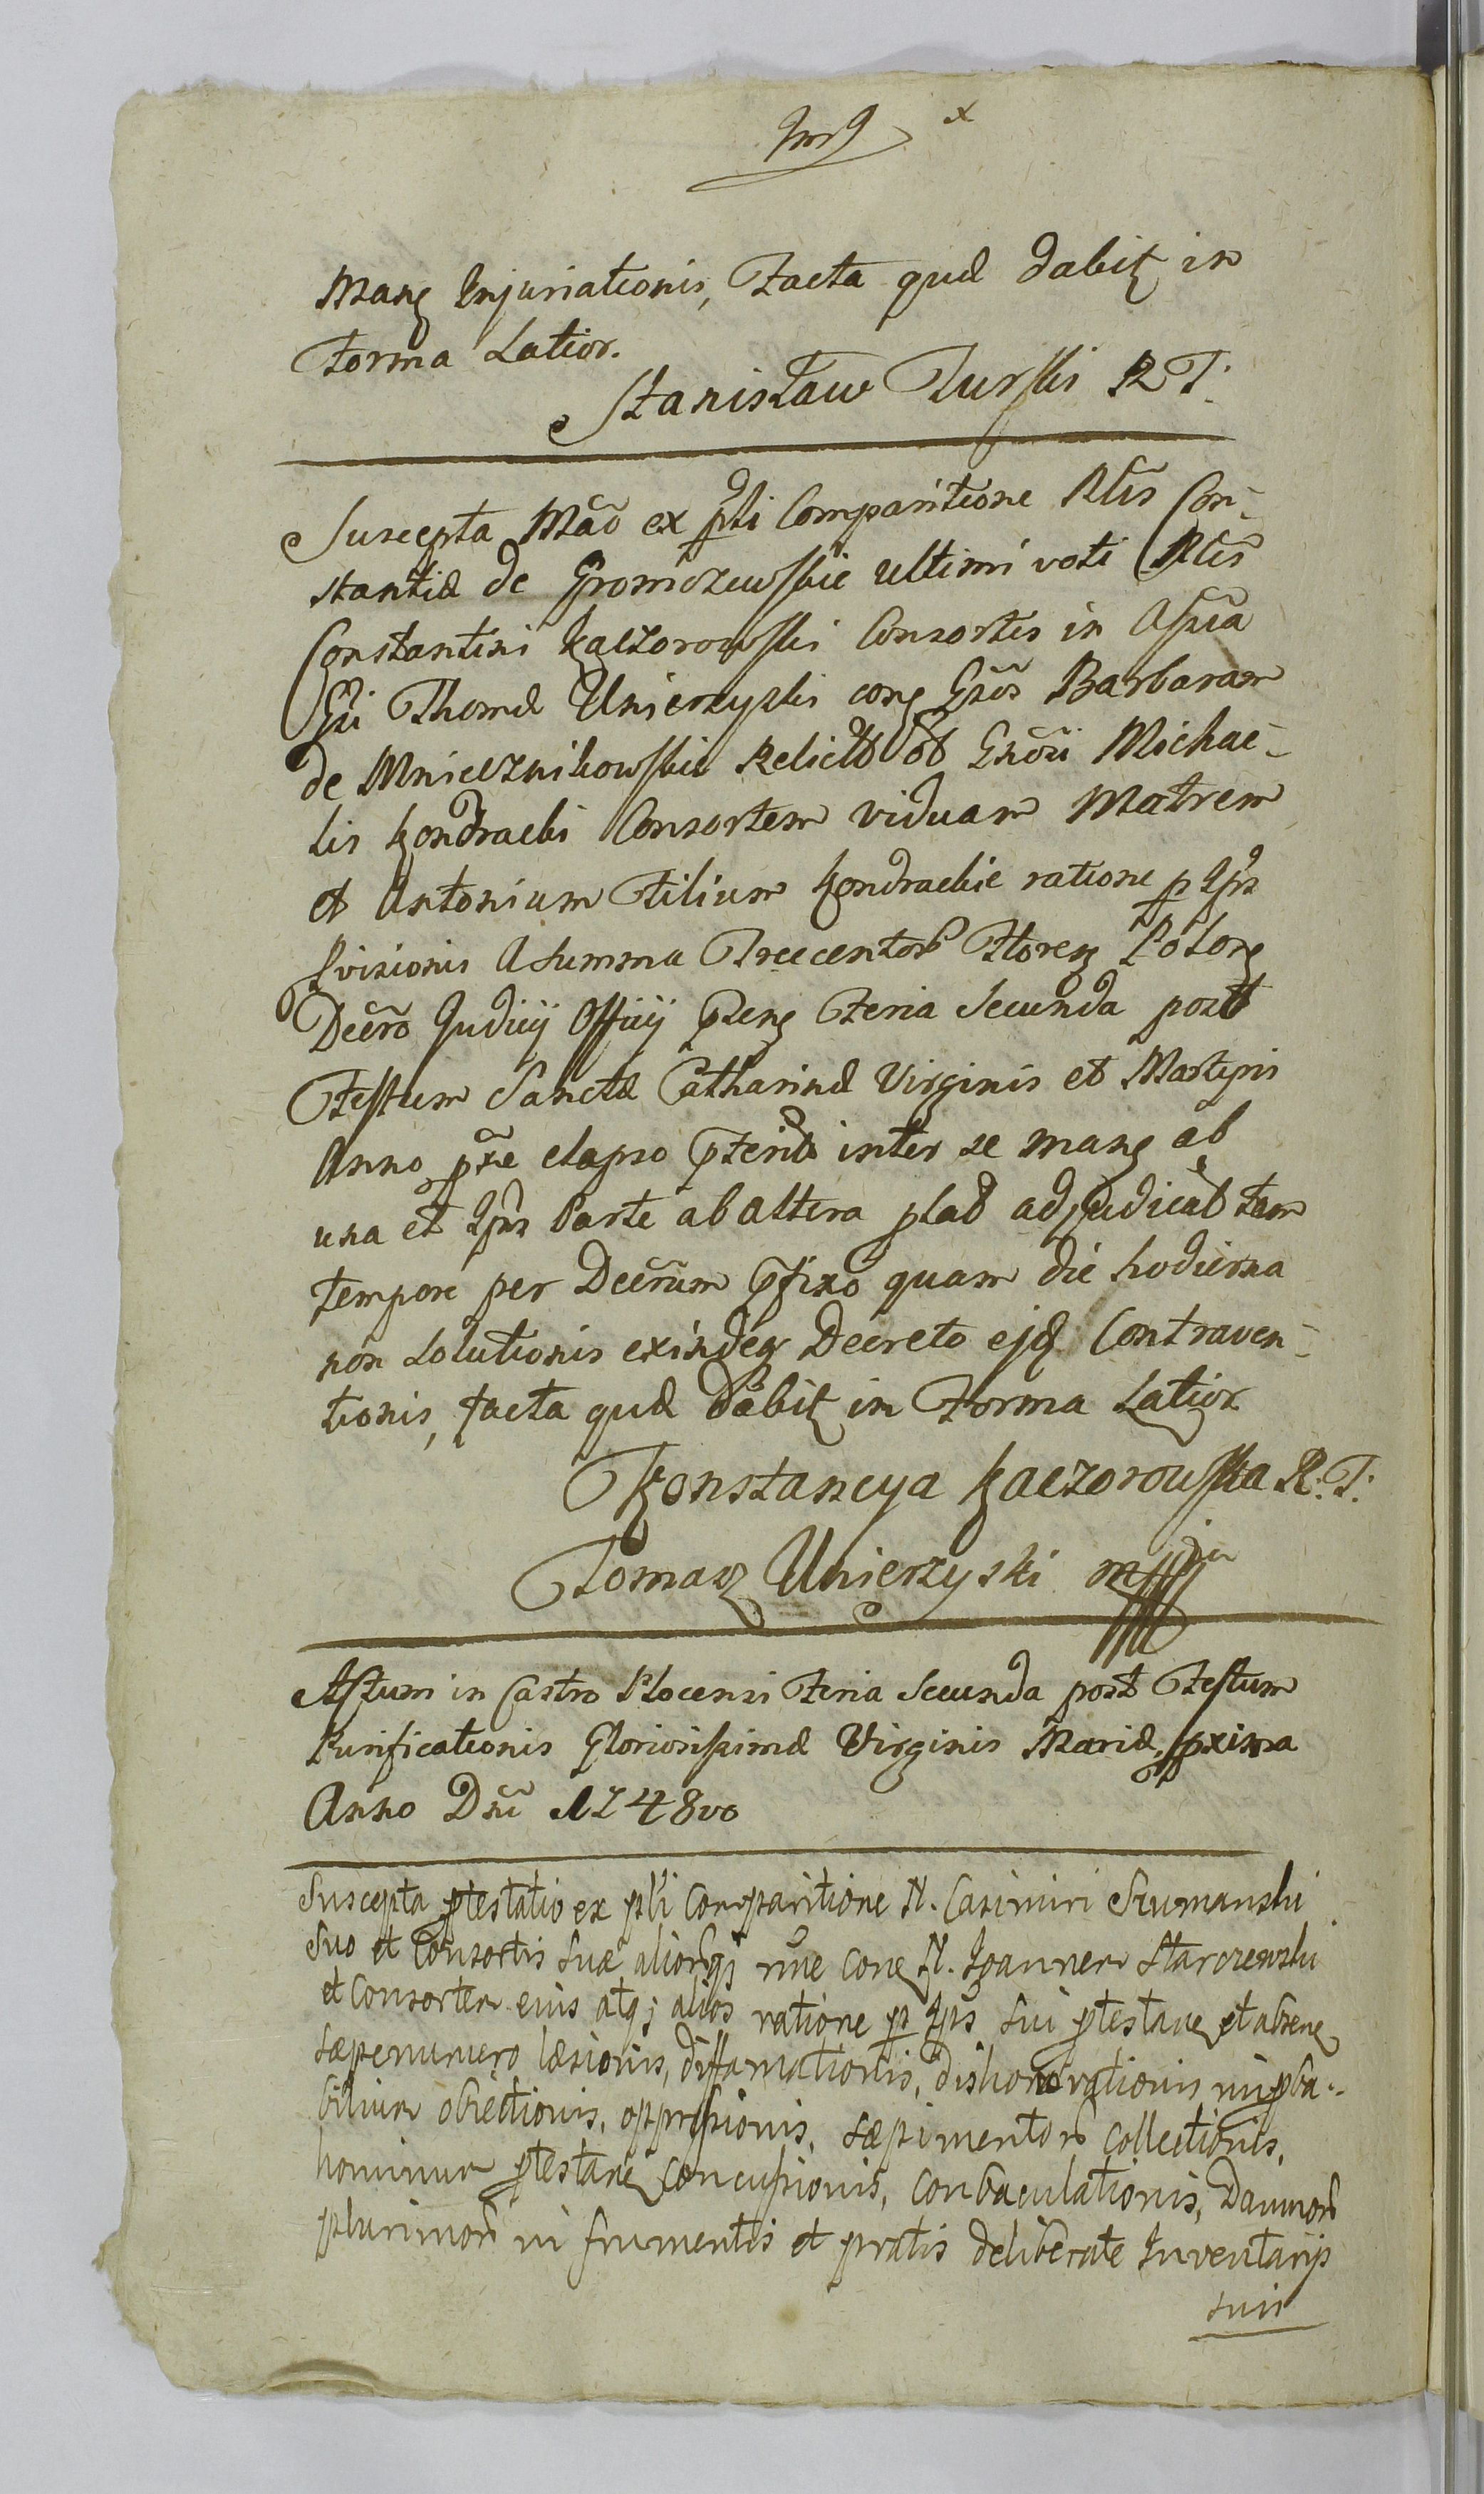 Manę Injuriationis, Facta quæ dabitʒ in
Forma Latior.
Stanisław Turski R T.
Suscepta Mãō ex pñli Comparitione Nłis Con-
stantiæ de Gromczewskie ultimi voti Nłis
Constantini Kaczorowski Consortis in Assñcia
Gñi Thomæ Unierzyski conę Gñōs Barbaram
de Mnieznikowskie Relictã ōb Gñōsi Michae-
lis Kondracki Consortem viduam Matrem
et Antonium Filium Kondrackie ratione p Ipōs
Summa Treecentorũ Florenʒ Polonʒ
Decr̃o Judicij Officij pñtenʒ Feria Secunda post
Festum Sanctæ Catharinæ Virginis et Martyris
Anno px̃e elapso p̃teritō inter se manę ab
una et Ipõs Parte ab altera plat adjudicat tam
tempore per Decr̃um p̃fixo quam die hodierna
non Solutionis exindeq Decreto ejq̃ Contraven-
tionis, facta quæ dabitʒ in Forma Latior
Konstancya Kaczorowska R. T.
Tomasz Unierzyski mpp
Actum in Castro Plocensi Feria Secunda post Festum
Purificationis Gloriosissimæ Virginis Mariæ, pxima
Anno Dñi 1748vo
Suscepta ptestatio ex pñli Comparitione N. Casimiri Szumanski
Suo et Consortis Suæ aliorq; nñe conę N. Joannem Starczewski
et Consortem eius atq; alios ratione p Ipõs sui ptestanę et absenę
sæpenumero læsionis, diffamationis, dishonorationis, impba-
bilium obiectionis, oppressionis, sæpimentorũ collectionis,
hominum ptestanę concussionis, conbaculationis, Damnorũ
plurimorũ in frumentis et pratis deliberate Inventarijs
suis